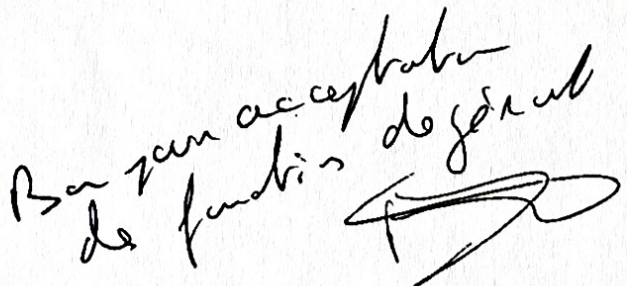 Bon pour acceptation
de fonctions de gérant